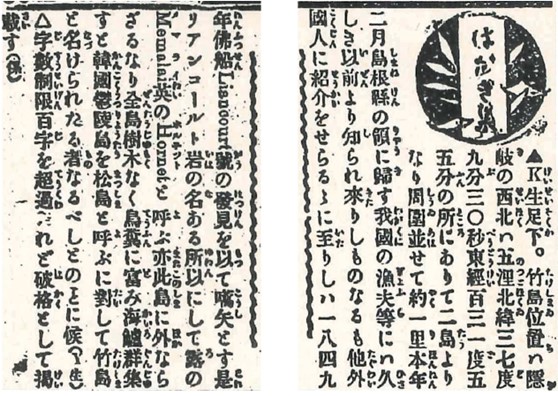 はがき集
▲K生足下。竹島位置ハ隠
岐の西北ハ五浬北緯三七度
九分三〇秒東經百三一度五
五分の所にありて二島より
なり周圍並せて約一里本年
二月島根縣の領に歸す我國の漁夫等にハ久
しき以前より知られ來りしものなるも他外
國人に紹介をせらるゝに至りしハ一八四九
年佛船Liancourt號の發見を以て嚆矢とす是
リアンコールト岩の名ある所以にして露の
Menalai英のHornetと呼ぶ亦此島に外なら
ざるなり全島樹木なく鳥糞に富み海鱸群集
すと韓國鬱陵島を松島と呼ぶに對して竹島
と名けられたる者なるべしとのことに候(A生)
△字數制限百字を超過されど破格として掲
載す